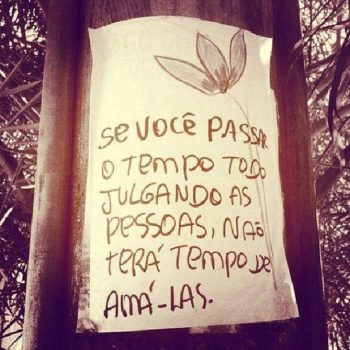 SE VOCÊ PASSAR
O TEMPO TODO
JULGANDO AS
PESSOAS, NÃO
TERÁ TEMPO DE
AMÁ-LAS.